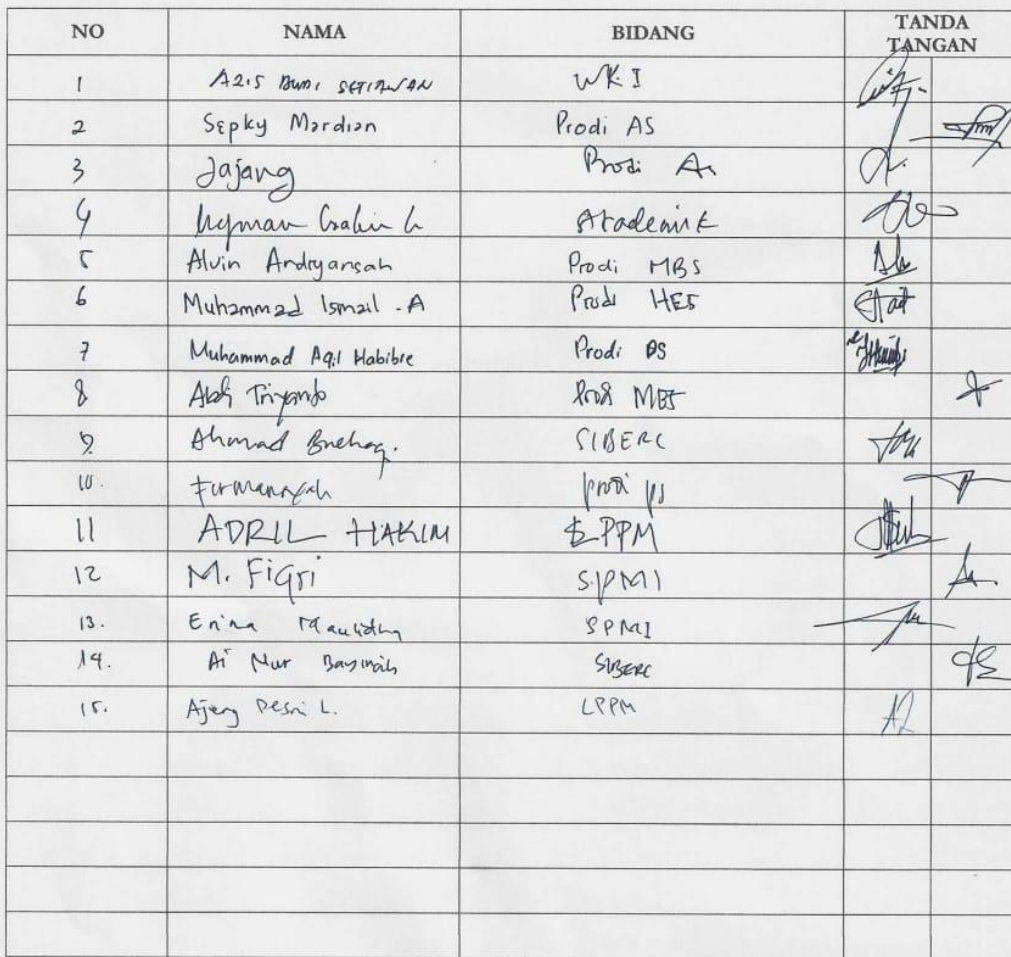 NO NAMA BIDANG TANDA TANGAN
1 AZIS BUDI SETIAWAN WK I
2 Sepky Mardian Prodi AS
3 Jajang Prodi As
4 Akademik
5 Alvin Andryansah Prodi MBS
6 Muhammad Ismail .A Prodi HES
7 Muhammad Aqil Habibie Prodi PS
8 Triyanto Prodi MBS
9. Ahmad SIBERC
10. Firmansyah prodi ps
11 ADRIL HAKIM LPPM
12 M. Fiqri SPMI
13. Erina Maulidha SPMI
14. Ai Nur Bayinah SIBERC
15. Ajeng Desni L. LPPM